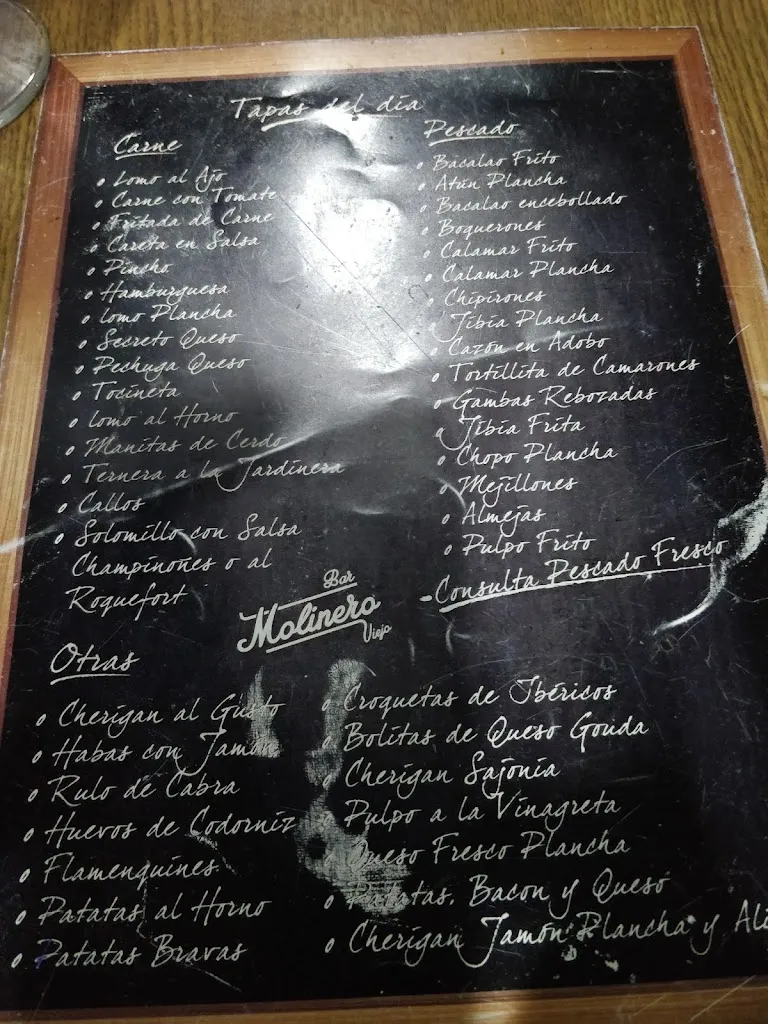 Tapas del día
Carne
• Lomo al Ajo
• Carne con Tomate
• Fritada de Carne
• Careta en Salsa
• Pincho
• Hamburguesa
• lomo Plancha
• Secreto Queso
• Pechuga Queso
• Tocineta
• lomo al Horno
• Manitas de Cerdo
• Ternera a la Jardinera
• Callos
• Solomillo con Salsa
Champiñones o al
Roquefort
Pescado
• Bacalao Frito
• Atún Plancha
• Bacalao encebollado
• Boquerones
• Calamar Frito
• Calamar Plancha
• Chipirones
• Jibia Plancha
• Cazón en Adobo
• Tortillita de Camarones
• Gambas Rebozadas
• Jibia Frita
• Chopo Plancha
• Mejillones
• Almejas
• Pulpo Frito
-Consulta Pescado Fresco
Bar
Molinero
Viejo
Otras
• Cherigan al Gusto
• Habas con Jamón
• Rulo de Cabra
• Huevos de Codorniz
• Flamenquines
• Patatas al Horno
• Patatas Bravas
• Croquetas de Ibéricos
• Bolitas de Queso Gouda
• Cherigan Sajonia
• Pulpo a la Vinagreta
• Queso Fresco Plancha
• Patatas, Bacon y Queso
• Cherigan Jamón Plancha y Ali